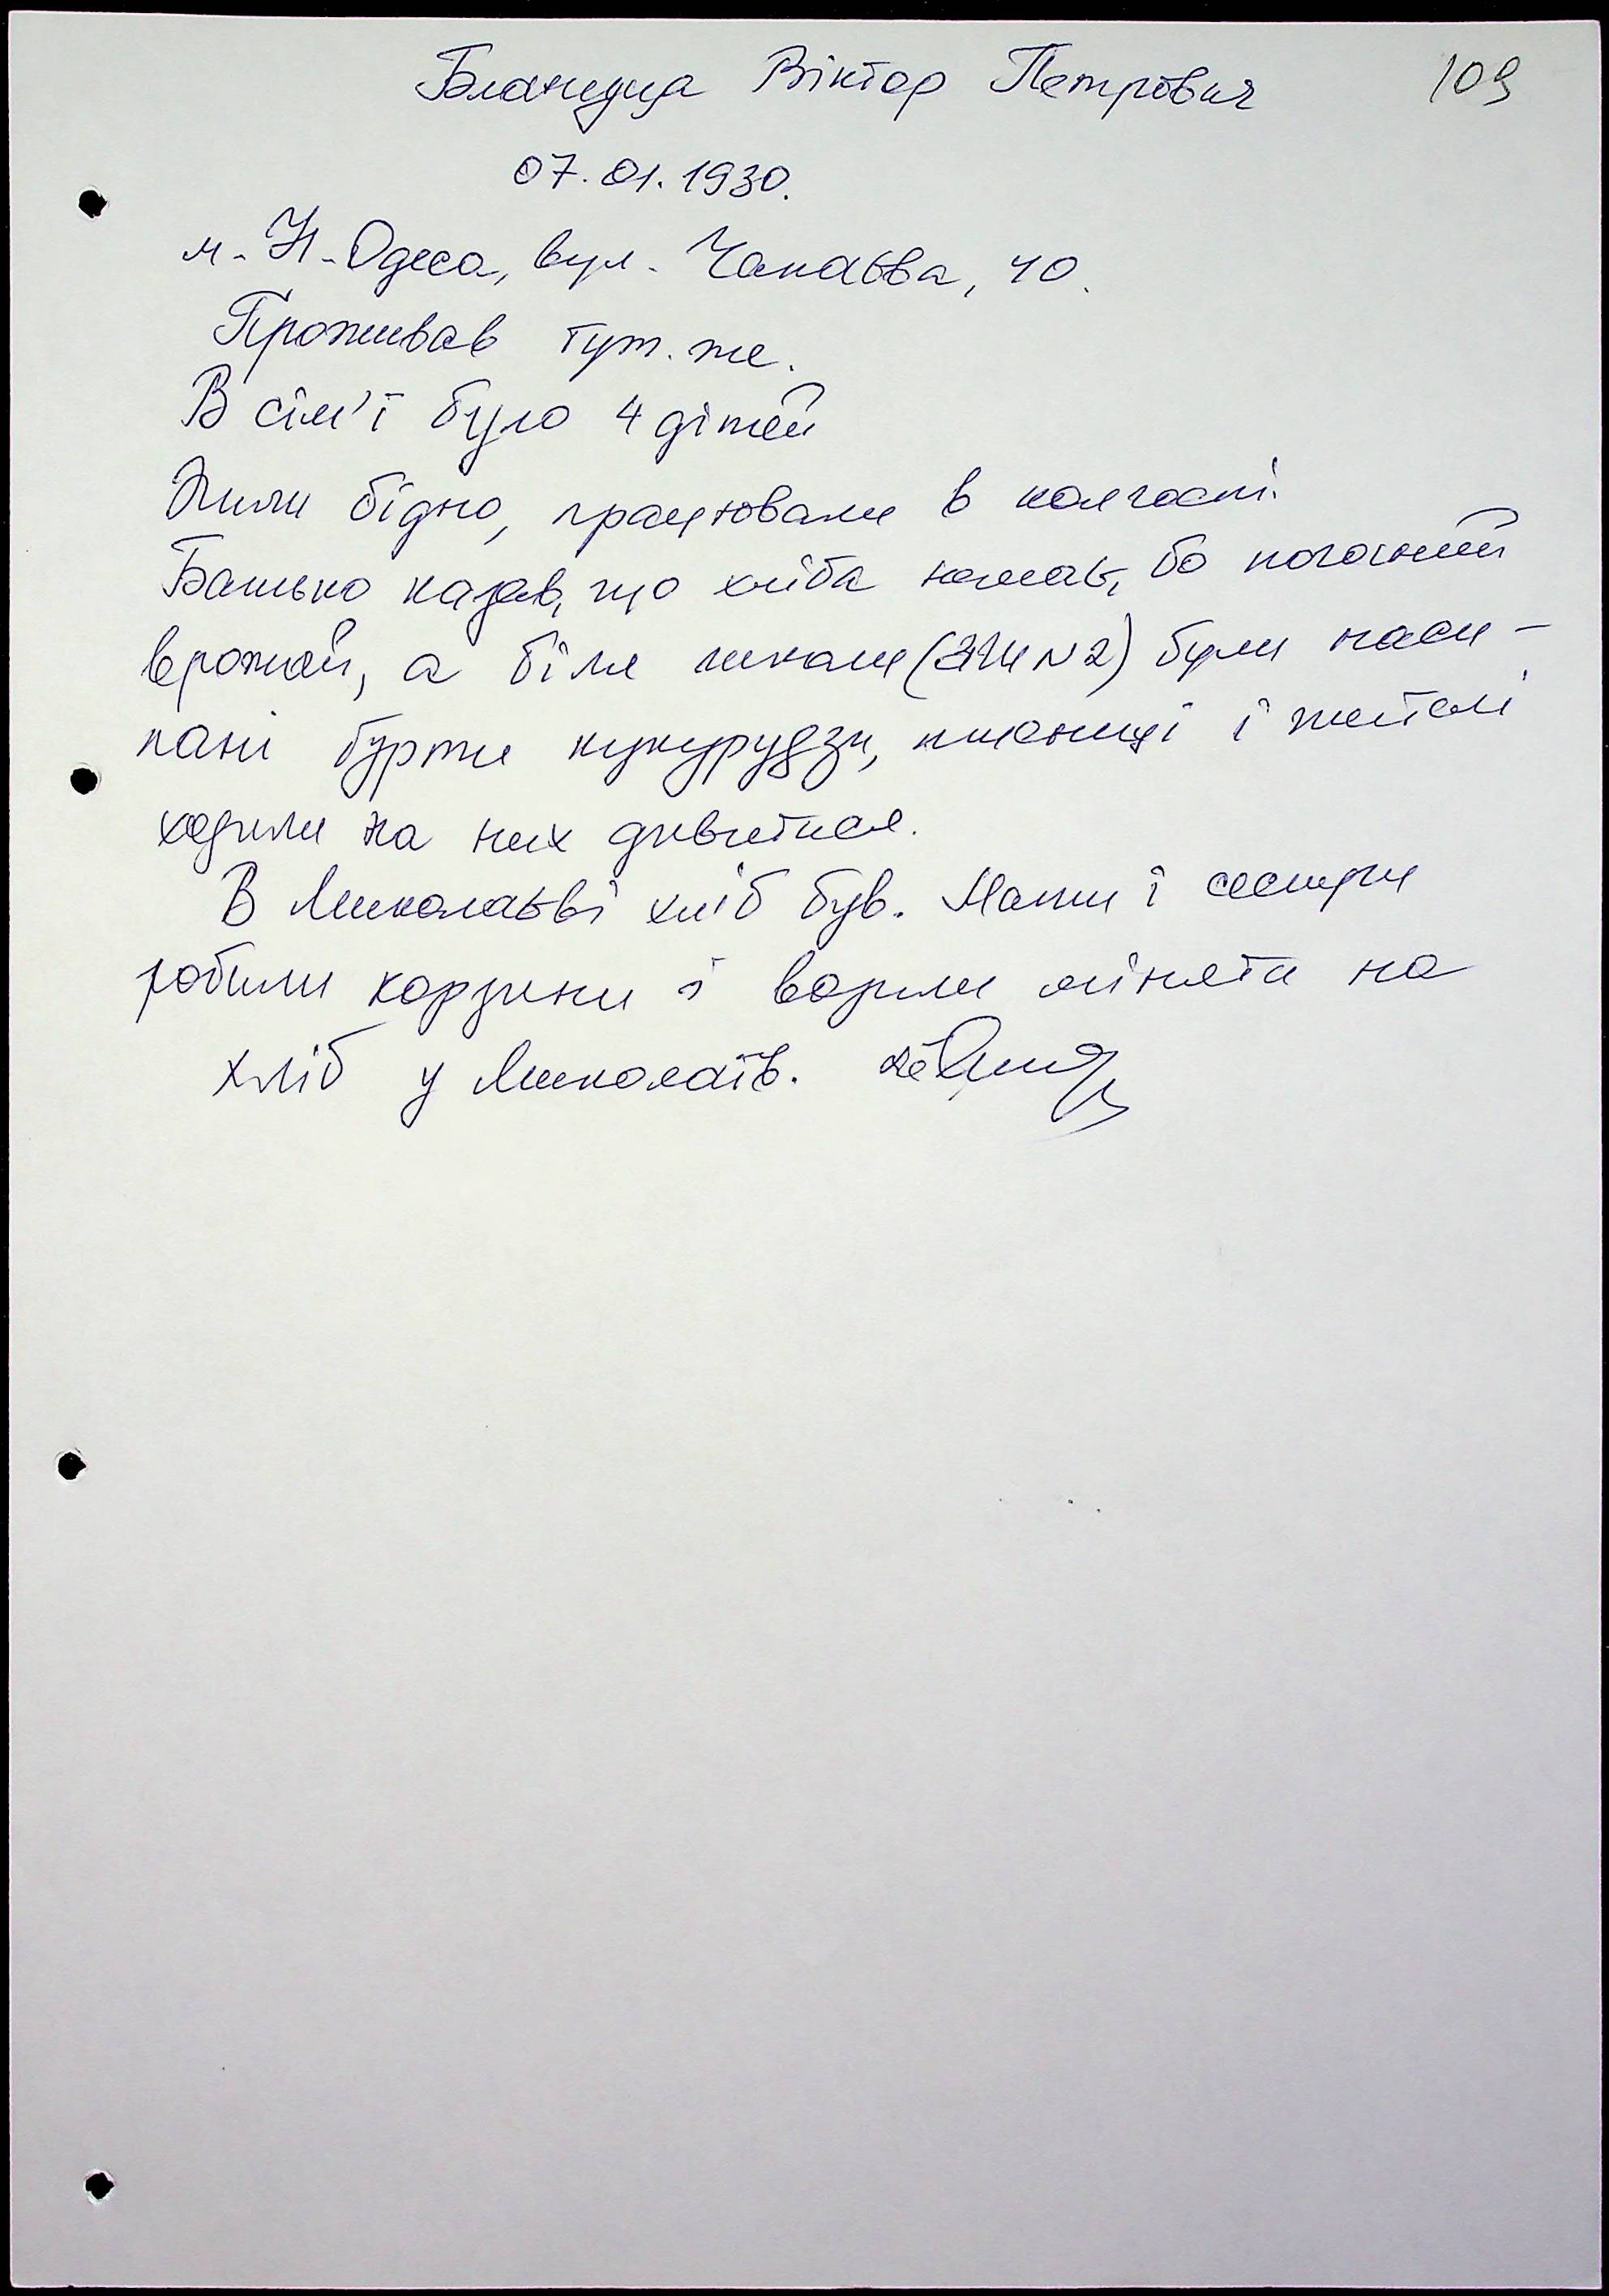 Бланчуца Віктор Петрович 109
07.01.1930.
м. Н-Одеса, вул. Чапаєва, 40.
Проживав тут же.
В сім'ї було 4 дітей
Жили бідно, працювали в колгоспі.
Батько казав, що хліба немає, бо поганий
врожай, а біля школи (ЗШ N2) були наси-
пані бурти кукурудзи, пшениці і жителі
ходили на них дивитися.
В Миколаєві хліб був. Мати і сестри
робили корзини і возили міняти на
хліб у Миколаїв.